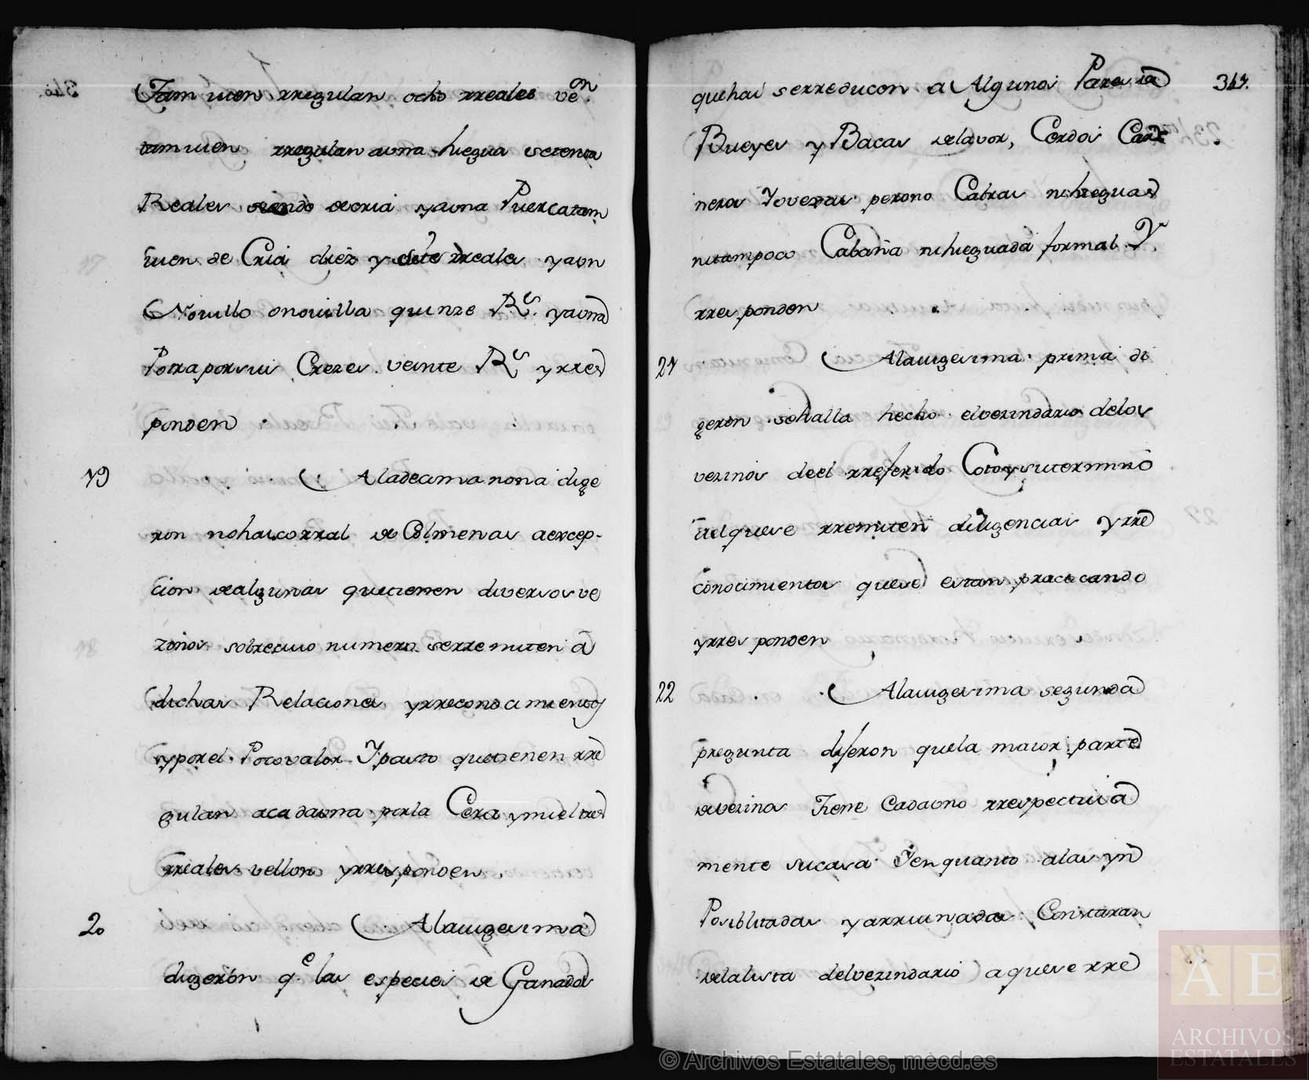 Tam vien rregulan ocho rreales veon.
tamvien rregulan auna hiegua setenta
Reales siendo decria yauna Puercatam
vien de Cria diez y siete rreales yaun
Novillo onovilla quinze Rs. yauna
Potra porsus Crezes veinte Rs yrres
ponden
19 Aladecima nona dige
ron nohaicorral de Colmenas aexcep-
cion dealgunas quetienen diversos ve
zinos sobrecuio numero serremiten a
dichas Relaciones yrreconocimientos
yporel Pocovalor Ypasto quetienen rre
gulan acadauna porla Cera ymiel tres
rreales vellon yrresponden
20 Alavigesima
digeron qe las especies de Ganados
347.
quehai serreducen a Algunos Pares de
Bueyes y Bacas delavor, Cerdos Car
neros Yovejas perono Cabras nihieguas
nitampoco Cabaña nihieguada formal Y.
rresponden
21 Alavigesima prima di
geron sehalla hecho elvezindario delos
vezinos deel rreferido Cotoysutermino
alquese rremiten diligencias yrre
conocimientos quese estan practicando
yrresponden
22 Alavigesima segunda
pregunta digeron quela maior parte
devezinos tiene cadauno rrespectiva
mente sucasa Yenquanto alas yn
Posiblitadas yarruinadas Constaran
delalista delvezindario aquese rre
© Archivos Estatales, mecd.es
AE
ARCHIVOS
ESTATALES